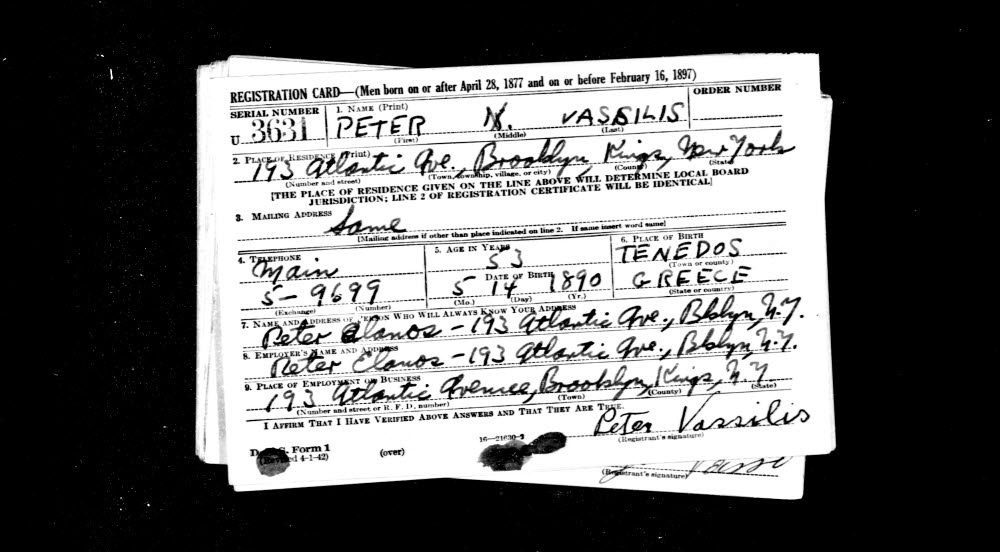 REGISTRATION CARD—(Men born on or after April 28, 1877 and on or before February 16, 1897)
SERIAL NUMBER
1. NAME (Print)
ORDER NUMBER
U 3631
PETER N. VASSILIS
(First) (Middle) (Last)
2. PLACE OF RESIDENCE (Print)
193 Atlantic Ave., Brooklyn, Kings, New York
(Number and street) (Town, township, village, or city) (County) (State)
[THE PLACE OF RESIDENCE GIVEN ON THE LINE ABOVE WILL DETERMINE LOCAL BOARD
JURISDICTION; LINE 2 OF REGISTRATION CERTIFICATE WILL BE IDENTICAL]
3. MAILING ADDRESS
Same
[Mailing address if other than place indicated on line 2. If same insert word same]
4. TELEPHONE
Main
5-9699
(Exchange) (Number)
5. AGE IN YEARS
53
DATE OF BIRTH
5 14 1890
(Mo.) (Day) (Yr.)
6. PLACE OF BIRTH
TENEDOS
(Town or county)
GREECE
(State or country)
7. NAME AND ADDRESS OF PERSON WHO WILL ALWAYS KNOW YOUR ADDRESS
Peter Elanos - 193 Atlantic Ave., Bklyn, N.Y.
8. EMPLOYER'S NAME AND ADDRESS
Peter Elanos - 193 Atlantic Ave., Bklyn, N.Y.
9. PLACE OF EMPLOYMENT OR BUSINESS
193 Atlantic Avenue, Brooklyn, Kings, N.Y.
(Number and street or R. F. D. number) (Town) (County) (State)
I AFFIRM THAT I HAVE VERIFIED ABOVE ANSWERS AND THAT THEY ARE TRUE.
Peter Vassilis
(Registrant's signature)
D. S. S. Form 1
(Revised 4-1-42)
(over)
16—21630-2
(Registrant's signature)